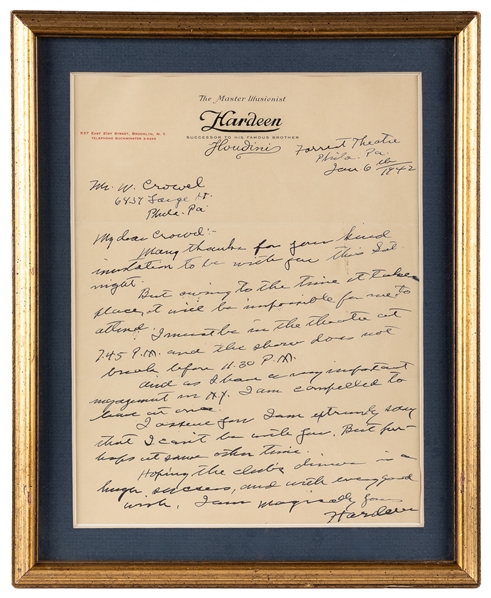 The Master Illusionist
Hardeen
SUCCESSOR TO HIS FAMOUS BROTHER
Houdini
EAST 21ST STREET, BROOKLYN, N. Y.
TELEPHONE
Forrest Theatre
Phila. Pa.
Jan 6th 1942
Mr. W. Crowel
6437 St.
Phila. Pa
My dear Crowel:-
Many thanks for your kind
invitation to be with you this Sat
night.
But owing to the time it takes
place, it will be impossible for me to
attend. I must be in the theatre at
7.45 P.M. and the show does not
break before 11.30 P.M.
And as I have a very important
engagement in N.Y. I am compelled to
leave at once.
I assure you I am extremly sorry
that I can't be with you. But per-
haps at some other time.
Hoping the clubs dinner is a
huge success, and with every good
wish, I am magically yours
Hardeen